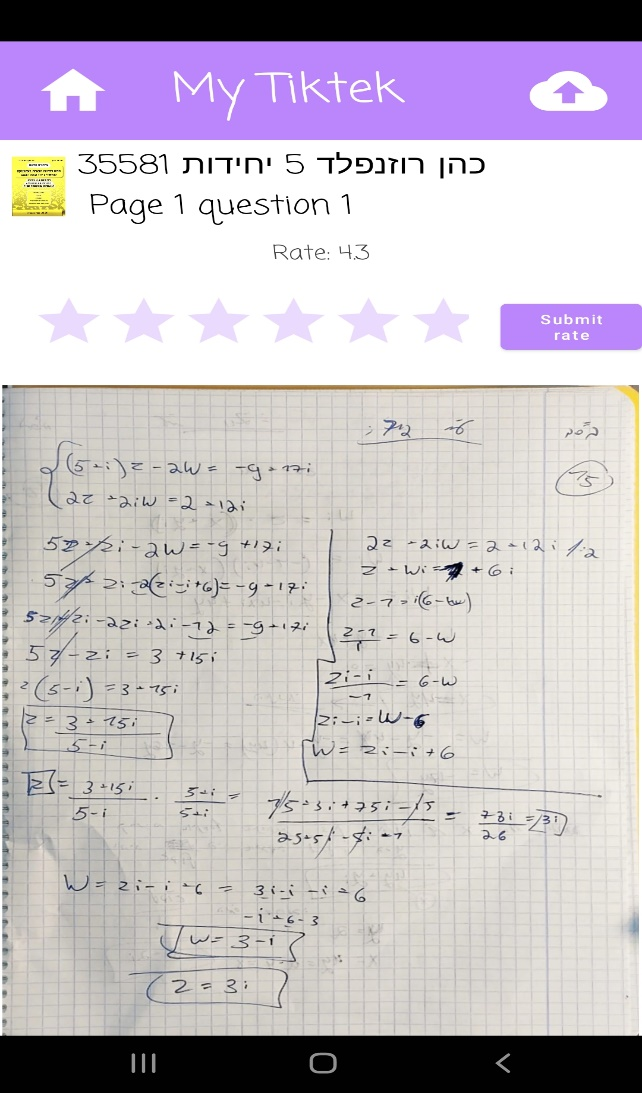 My Tiktek
כהן רוזנפלד 5 יחידות 35581
Page 1 question 1
Rate: 4.3
Submit
rate
15
(5+i)z - 2w = -9+17i
2z +2iw = 2 +12i
5z+zi-2w=-9+17i
5z+zi-2(zi-i+6)=-9+17i
5z+zi-2zi+2i-12=-9+17i
5z-zi = 3 +15i
z(5-i) = 3+15i
z = 3+15i
5-i
2z +2iw = 2+12i /:2
z+wi=1+6i
z-1=i(6-w)
z-1
i
= 6-w
zi-i
-1
= 6-w
zi-i=w-6
w= zi-i+6
z = 3+15i / 5-i · 5+i / 5+i = 15+3i+75i-15 / 25+5i-5i+1 = 78i / 26 = 3i
w= zi-i+6 = 3i·i-i+6
-i+6-3
w= 3-i
z = 3i